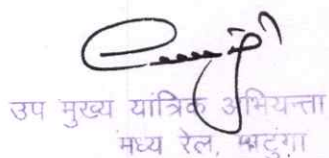 उप मुख्य यांत्रिक अभियन्ता
मध्य रेल, माटुंगा